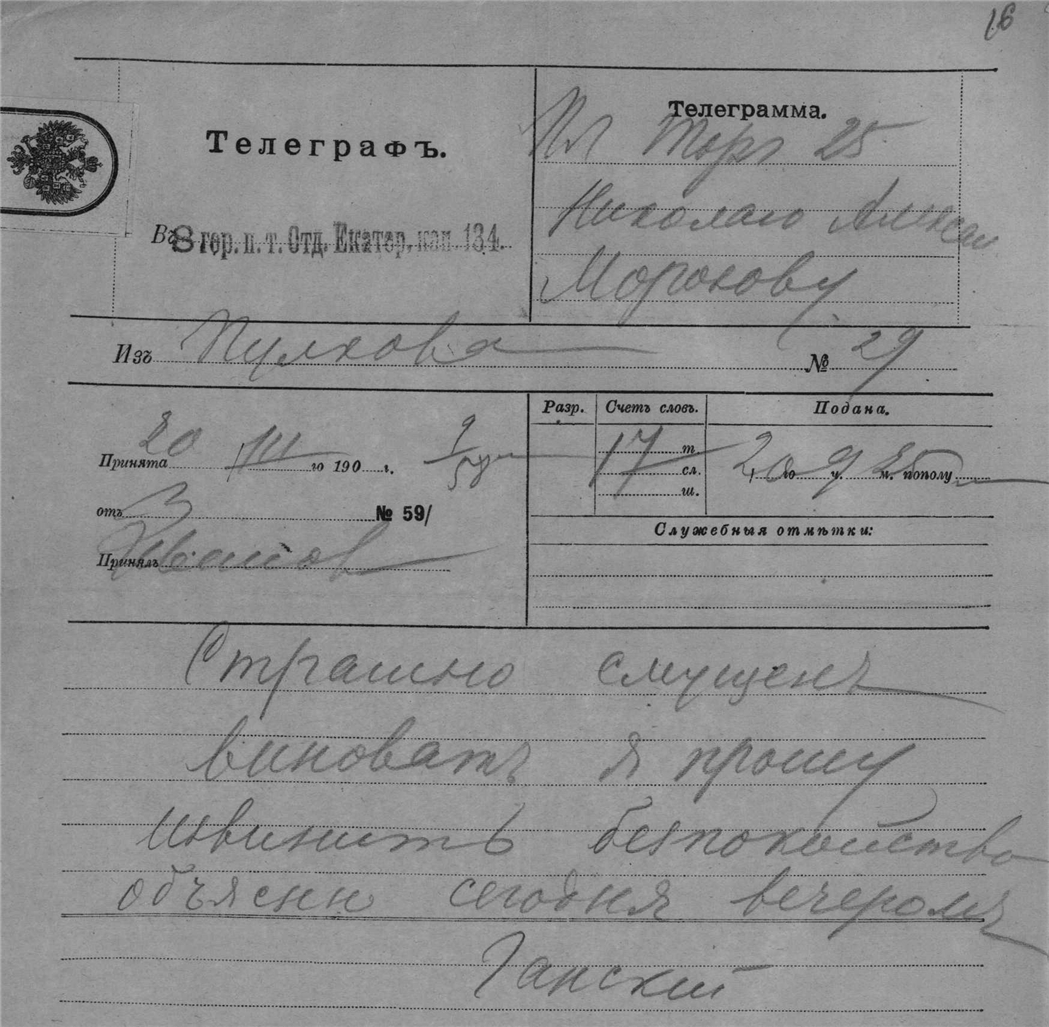 16
Телеграфъ.
Въ 8 гор. п. т. Отд. Екатер. кан. 134.
Телеграмма.
Пл Торг 25
Николаю Алексан
Морокову
Изъ Пулкова № 29
Принята 20/III го 190 г. 9/58
отъ З № 59/
Принялъ Иванов
Разр. Счетъ словъ. Подана.
17 т. сл. ш.
20 го 9 ч. 25 м. пополу
Служебныя отмѣтки:
Страшно смущенъ
виноватъ я прошу
извинить безпокойство
объясню сегодня вечеромъ
Ганский